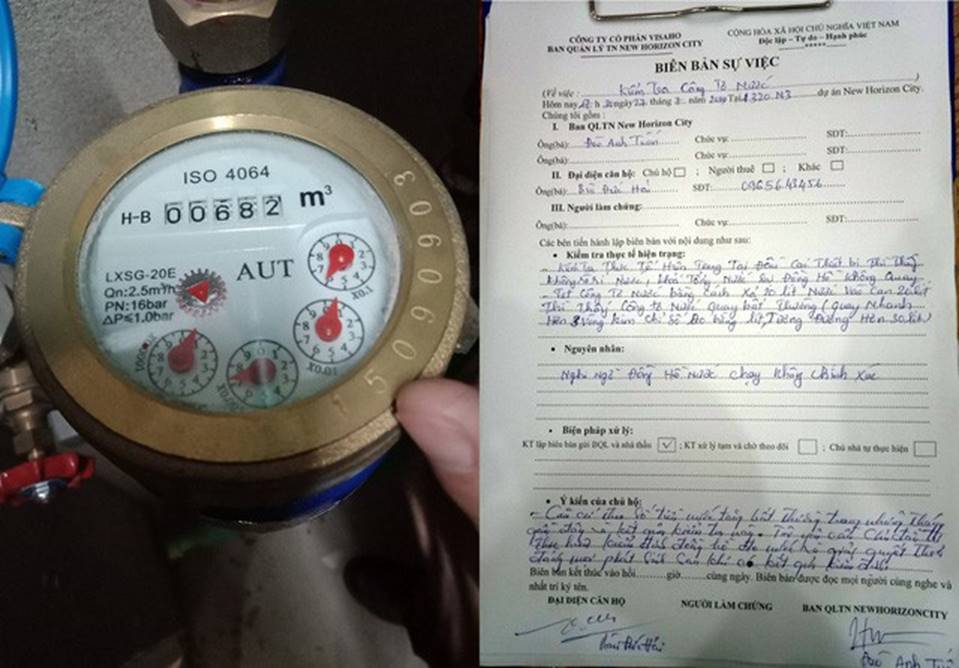 ISO 4064
H-B 00682 m³
LXSG-20E
AUT
Qn:2.5m³/h
PN:16bar
ΔP≤1.0bar
X0.1
X0.01
15090903
CÔNG TY CỔ PHẦN VISAHO
BAN QUẢN LÝ TN NEW HORIZON CITY
CỘNG HÒA XÃ HỘI CHỦ NGHĨA VIỆT NAM
Độc lập - Tự do - Hạnh phúc
BIÊN BẢN SỰ VIỆC
(Về việc: Kiểm tra Công Tơ Nước)
Hôm nay h ngày 27 tháng năm Tại dự án New Horizon City.
Chúng tôi gồm:
I. Ban QLTN New Horizon City
Ông(bà): Đào Anh Tuấn Chức vụ: SĐT:
Ông(bà): Chức vụ: SĐT:
II. Đại diện căn hộ: Chủ hộ ; Người thuê ; Khác
Ông(bà): SĐT:
III. Người làm chứng:
Ông(bà): Chức vụ: SĐT:
Các bên tiến hành lập biên bản với nội dung như sau:
• Kiểm tra thực tế hiện trạng:
- Kiểm Tra Thực Tế Hiện Trạng Tại Đầu Các Thiết bị Thì Thấy
không rò rỉ Nước, khóa Tổng Nước lại Đồng Hồ Không Quay
- Test Công Tơ Nước Bằng Cách Xả 20 lít Nước Vào Can 20 lít
Thì Thấy Công tơ Nước Quay bất Thường (Quay Nhanh
Hơn 3 Vòng kim chỉ số đo hàng lít, Tương Đương Hơn 30 lít)
• Nguyên nhân:
Nghi Ngờ Đồng Hồ Nước Chạy Không Chính Xác
• Biện pháp xử lý:
KT lập biên bản gửi BQL và nhà thầu ✓ ; KT xử lý tạm và chờ theo dõi ; Chủ nhà tự thực hiện
• Ý kiến của chủ hộ:
- Căn cứ theo số tiêu nước tăng bất thường trong những tháng
gần đây và kết quả kiểm tra này. Tôi yêu cầu Chủ đầu tư
thực hiện kiểm định đồng hồ đo nước và giải quyết theo
đúng mọi phát sinh sau khi có kết quả kiểm định
Biên bản kết thúc vào hồi giờ cùng ngày. Biên bản được đọc mọi người cùng nghe và
nhất trí ký tên.
ĐẠI DIỆN CĂN HỘ NGƯỜI LÀM CHỨNG BAN QLTN NEWHORIZONCITY